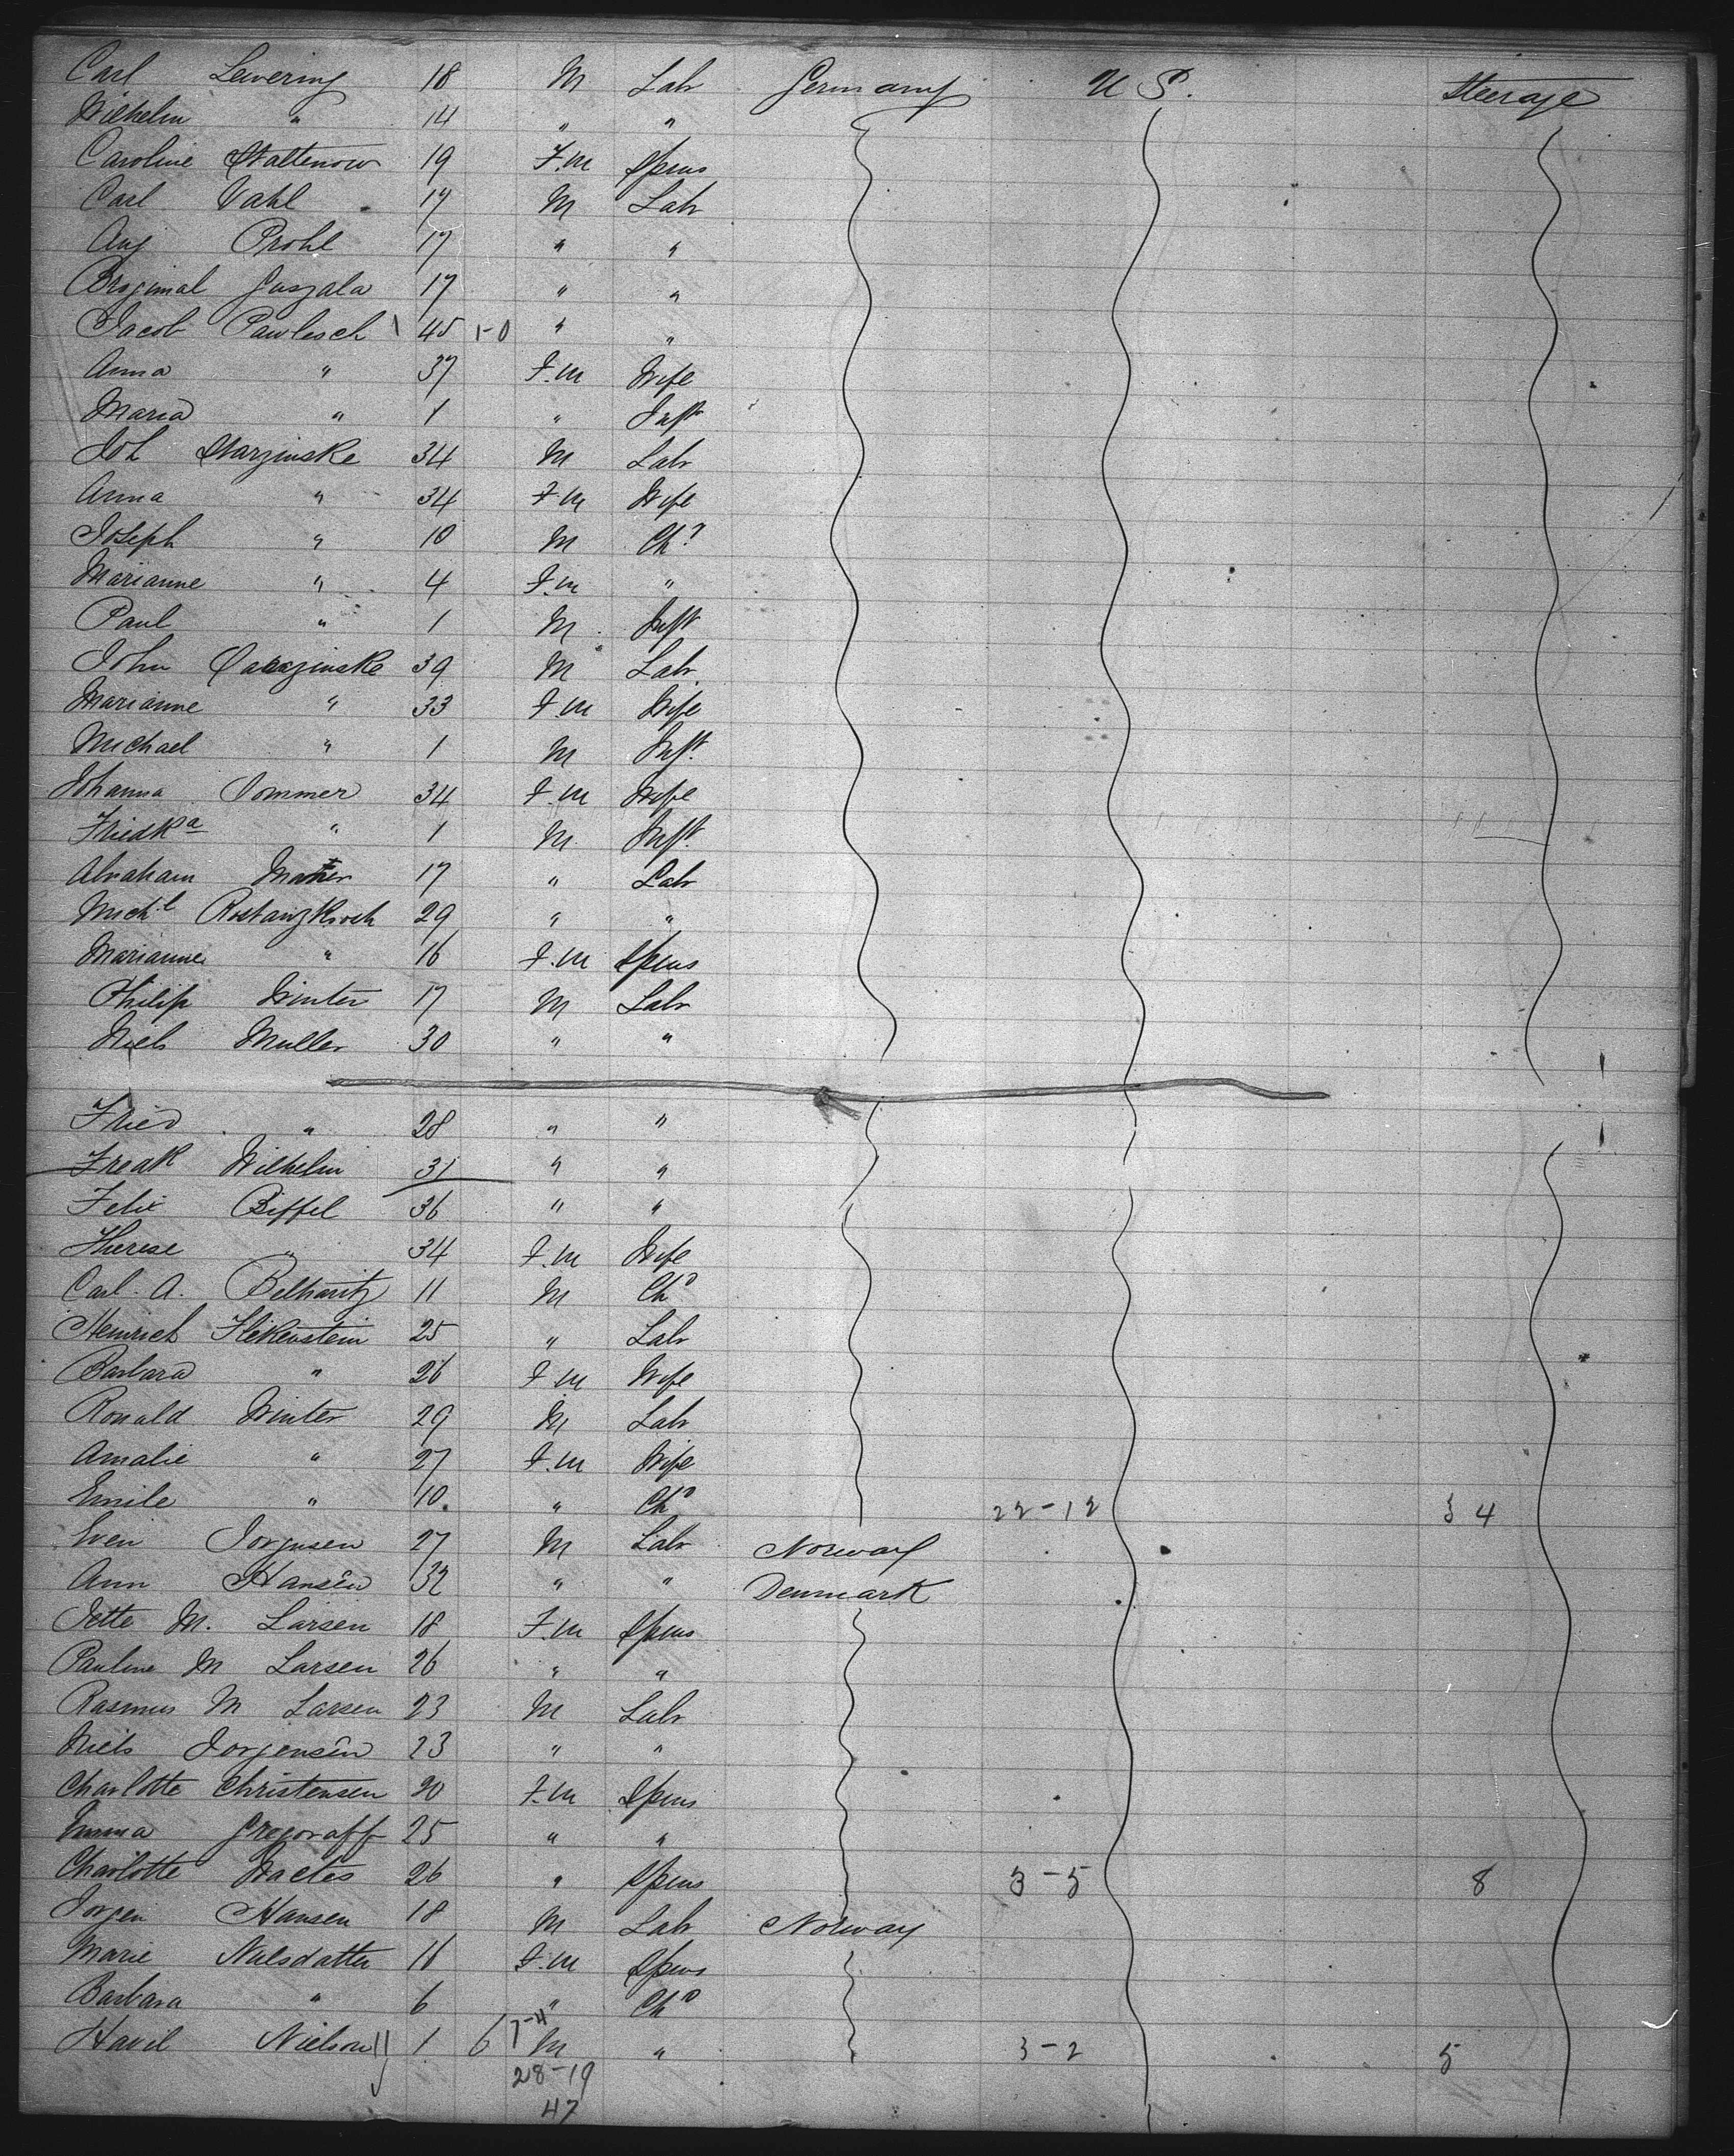 Carl Lewering 18 M Lab Germany U S. Steerage
Wilhelm " 14 " "
Caroline Stattenow 19 F.m Spins
Carl Vahl 17 M Lab
Aug Prohl 17 " "
Guszala 17 " "
Jacob Pawlesch 45 1-0 " "
Anna " 37 F.m Wife
Maria " 1 " Inft
Joh Starzinske 34 M Lab
Anna " 34 F.m Wife
Joseph " 10 M Chd
Marianne " 4 F.m "
Paul " 1 M Inft
John 39 M Lab
Marianne " 33 F.m Wife
Michael " 1 M Inft.
Johanna Sommer 34 F.m Wife
Friedka " 1 M Inft.
Abraham 17 " Lab
Michl 29 " "
Marianne " 16 F.m Spins
Philip Winter 17 M Lab
Niels Muller 30 " "
Fried " 28 " "
Freak Wilhelm 31 " "
Felix Biffel 36 " "
Therese " 34 F.m Wife
Carl. A. Belharitz 11 M Chd
Heinrich Flekenstein 25 " Lab
Barbara " 26 F.m Wife
Ronald Winter 29 M Lab
Amalie " 27 F.m Wife
Emile " 10. " Chd 22-12 34
Even Jorgusen 27 M Lab Norway
Ann Hansen 32 " " Denmark
Jette M. Larsen 18 F.m Spins
Pauline M Larsen 26 " "
Rasmus M Larsen 23 M Lab
Niels Jorgensen 23 " "
Charlotte Christensen 20 F.m Spins
Emma Gregoraff 25 " "
Charlotte Wactes 26 " Spins 3-5 8
Jorgen Hansen 18 M Lab Norway
Marie Nulsdatter 18 F.m Spins
Barbara " 6 " Chd
Havil Nielson 1 6 7-4 M " 3-2 5
28-19
47